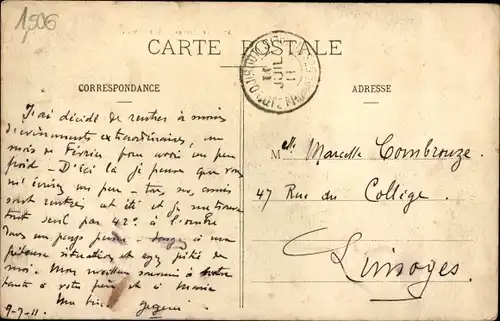 1506
CARTE POSTALE
CORRESPONDANCE
ADRESSE
J'ai décidé de rentrer à moins
d'évènements extraordinaires, au
mois de Février pour avoir un peu
froid - D'ici là je pense que vous
m'écrirez un peu - tous mes amis
sont rentrés cet été et je me trouve
tout seul par 42° à l'ombre
dans un pays perdu - Songez à ma
piteuse situation et ayez pitié de
moi. Mon meilleur souvenir à votre
tante à votre père et à Marie
9-7-11.
Melle Marcelle Combrouze
47 Rue du Collège.
Limoges
JUIL
11